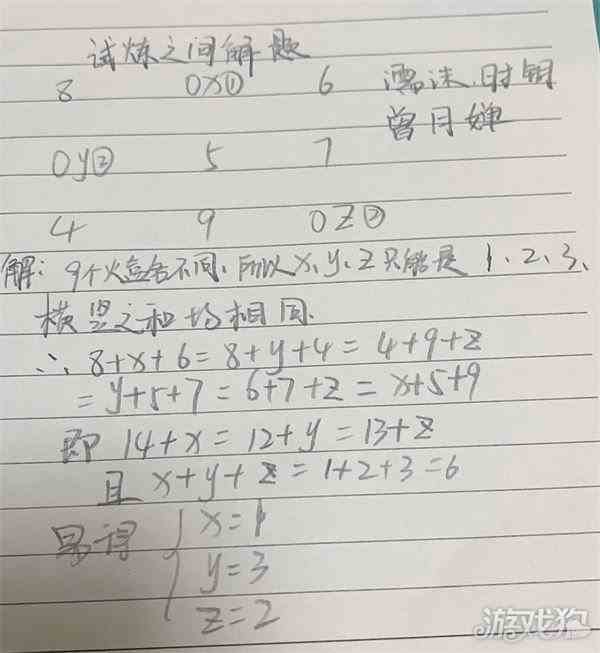 试炼之间解题
8 0x① 6 濡沫.时钥
曾月婵
0y② 5 7
4 9 0z②
解: 9个火盆各不同,所以x、y、z只能是1、2、3、
横竖之和均相同.
∴ 8+x+6=8+y+4=4+9+z
=y+5+7=6+7+z=x+5+9
即 14+x=12+y=13+z
且 x+y+z=1+2+3=6
易得 x=1
y=3
z=2
游戏狗